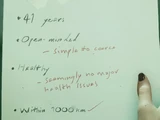 • 41 years
• Open-minded
- simple to
• Healthy
- seemingly no major
health issues
• Within 1000km